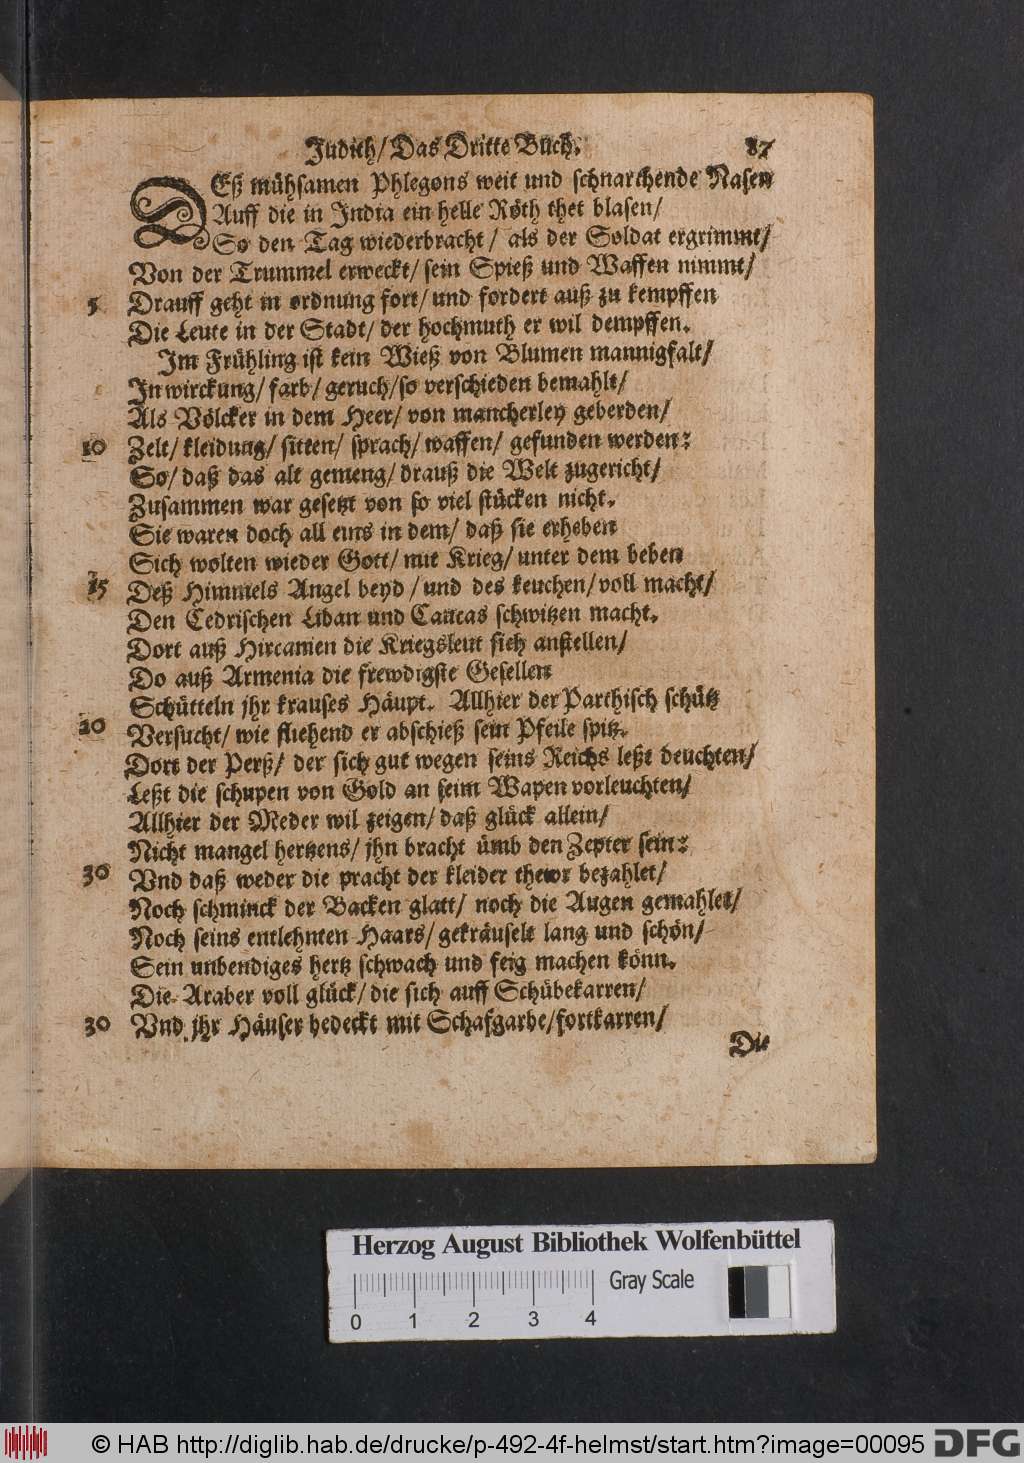 Judith/ Das Dritte Buch. 87
DEß mühsamen Phlegons weit und schnarchende Nasen
Auff die in India ein helle Röth thet blasen/
So den Tag wiederbracht/ als der Soldat ergrimmt/
Von der Trummel erweckt/ sein Spieß und Waffen nimmt/
5 Drauff geht in ordnung fort/ und fordert auß zu kempffen
Die Leute in der Stadt/ der hochmuth er wil dempffen.
Im Frühling ist kein Wieß von Blumen mannigfalt/
In wirckung/ farb/ geruch/ so verschieden bemahlt/
Als Völcker in dem Heer/ von mancherley geberden/
10 Zelt/ kleidung/ sitten/ sprach/ waffen/ gefunden werden:
So/ daß das alt gemeng/ drauß die Welt zugericht/
Zusammen war gesetzt von so viel stücken nicht.
Sie waren doch all eins in dem/ daß sie erheben
Sich wolten wieder Gott/ mit Krieg/ unter dem beben
15 Deß Himmels Angel beyd/ und des keuchen/ voll macht/
Den Cedrischen Liban und Caucas schwitzen macht.
Dort auß Hircanien die Kriegsleut sich anstellen/
Do auß Armenia die frewdigste Gesellen
Schütteln jhr krauses Häupt. Allhier der Parthisch schütz
20 Versucht/ wie fliehend er abschieß sein Pfeile spitz.
Dort der Perß/ der sich gut wegen seins Reichs leßt deuchten/
Leßt die schupen von Gold an seim Wapen vorleuchten/
Allhier der Meder wil zeigen/ daß glück allein/
Nicht mangel hertzens/ jhn bracht ümb den Zepter sein:
30 Vnd daß weder die pracht der kleider thewr bezahlet/
Noch schminck der Backen glatt/ noch die Augen gemahlet/
Noch seins entlehnten Haars/ gekräuselt lang und schön/
Sein unbendiges hertz schwach und feig machen könn.
Die Araber voll glück/ die sich auff Schübekarren/
30 Vnd jhr Häuser bedeckt mit Schafgarbe/ fortkarren/
Die
Herzog August Bibliothek Wolfenbüttel
Gray Scale
0 1 2 3 4
© HAB http://diglib.hab.de/drucke/p-492-4f-helmst/start.htm?image=00095 DFG